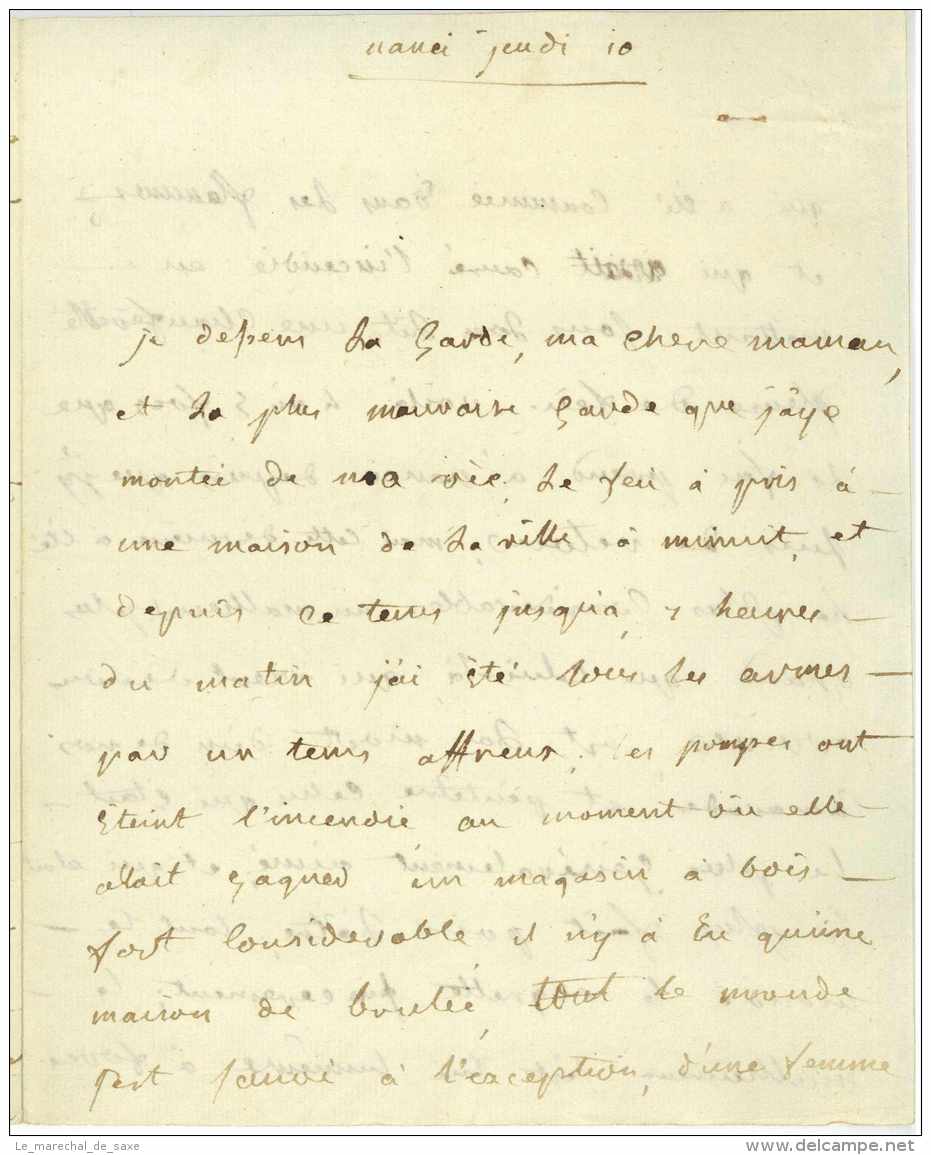 nanci jeudi 10
je descens la garde, ma chere maman,
et la plus mauvaise garde que j'aye
montée de ma vie. le feu à pris à
une maison de la ville à minuit, et
depuis ce tems jusqu'à 7 heures
du matin j'ai été sous les armes
par un tems affreux. les pompes ont
éteint l'incendie au moment où elle
alait gagner un magasin à bois
fort considerable, il n'y à eu qu'une
maison de brulée, tout le monde
s'est sauvé à l'exception, d'une femme
Le_marechal_de_saxe
delcampe.net